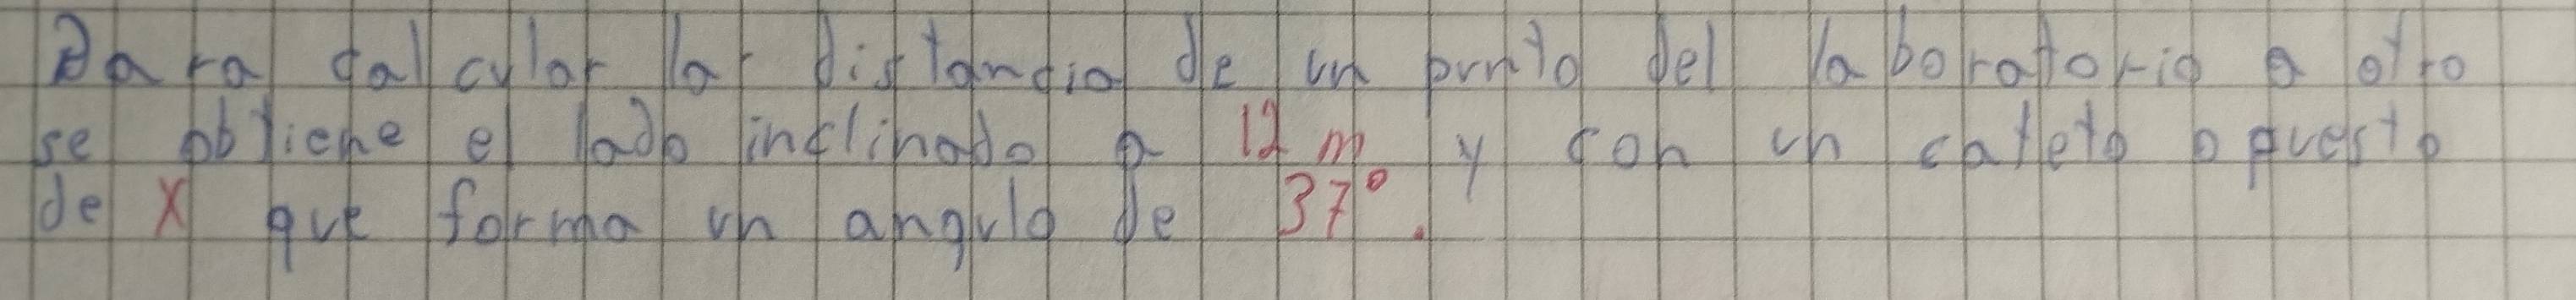 Para calcular lar distancia de un punto del laboratorio a otro
se obtiene el lado inclinado a 12 m y con un cateto opuesto
de X que forma un angulo de 37°.